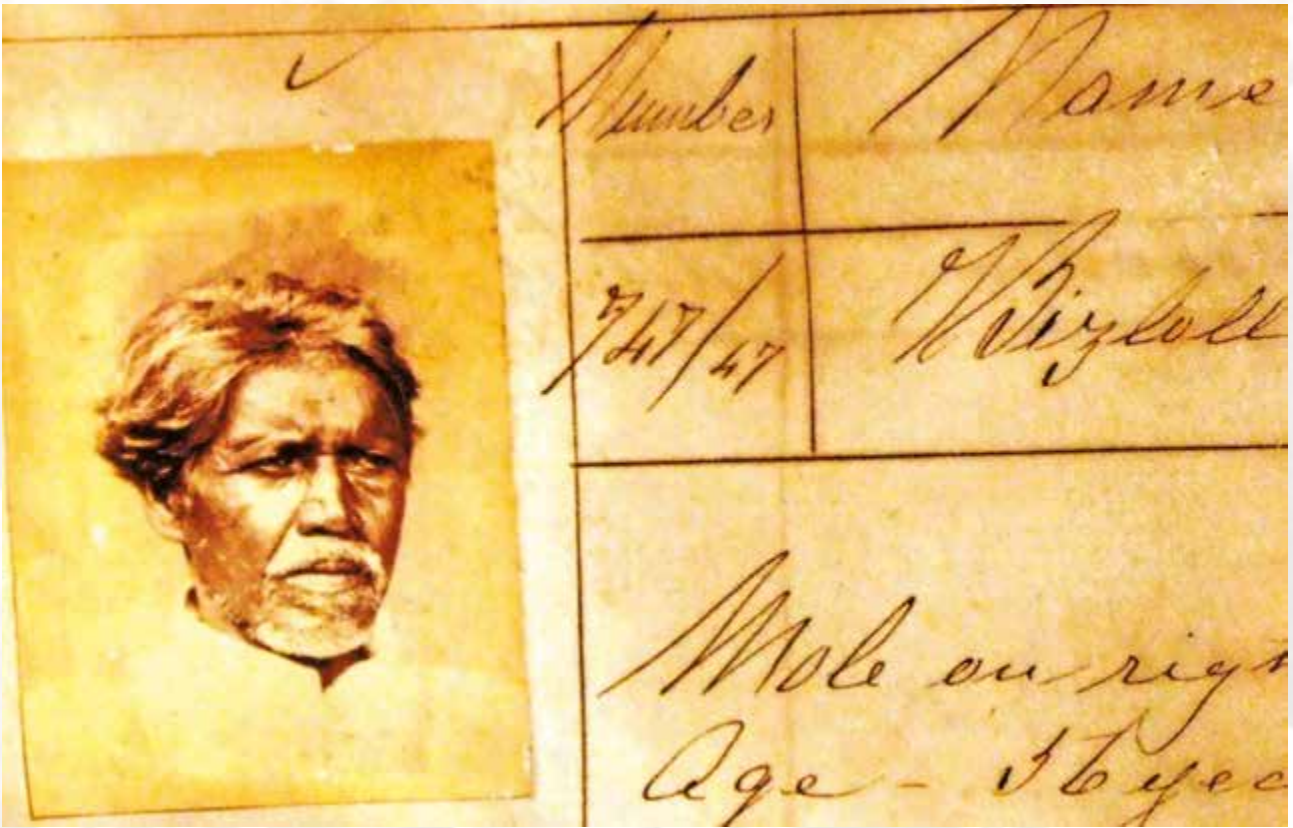 Number Name
747/47
Mole on righ
Age - 56 yea